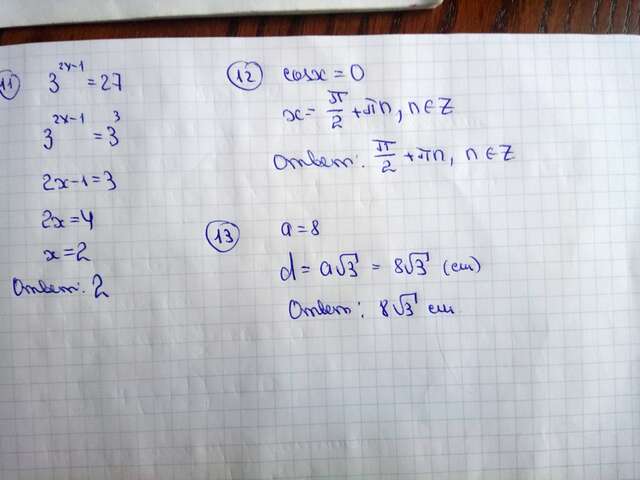 11 3^{2x-1} = 27
3^{2x-1} = 3^3
2x-1=3
2x=4
x=2
Ответ: 2
12 cosx = 0
x = π/2 + πn, n ∈ Z
Ответ: π/2 + πn, n ∈ Z
13 a = 8
d = a√3 = 8√3 (см)
Ответ: 8√3 см